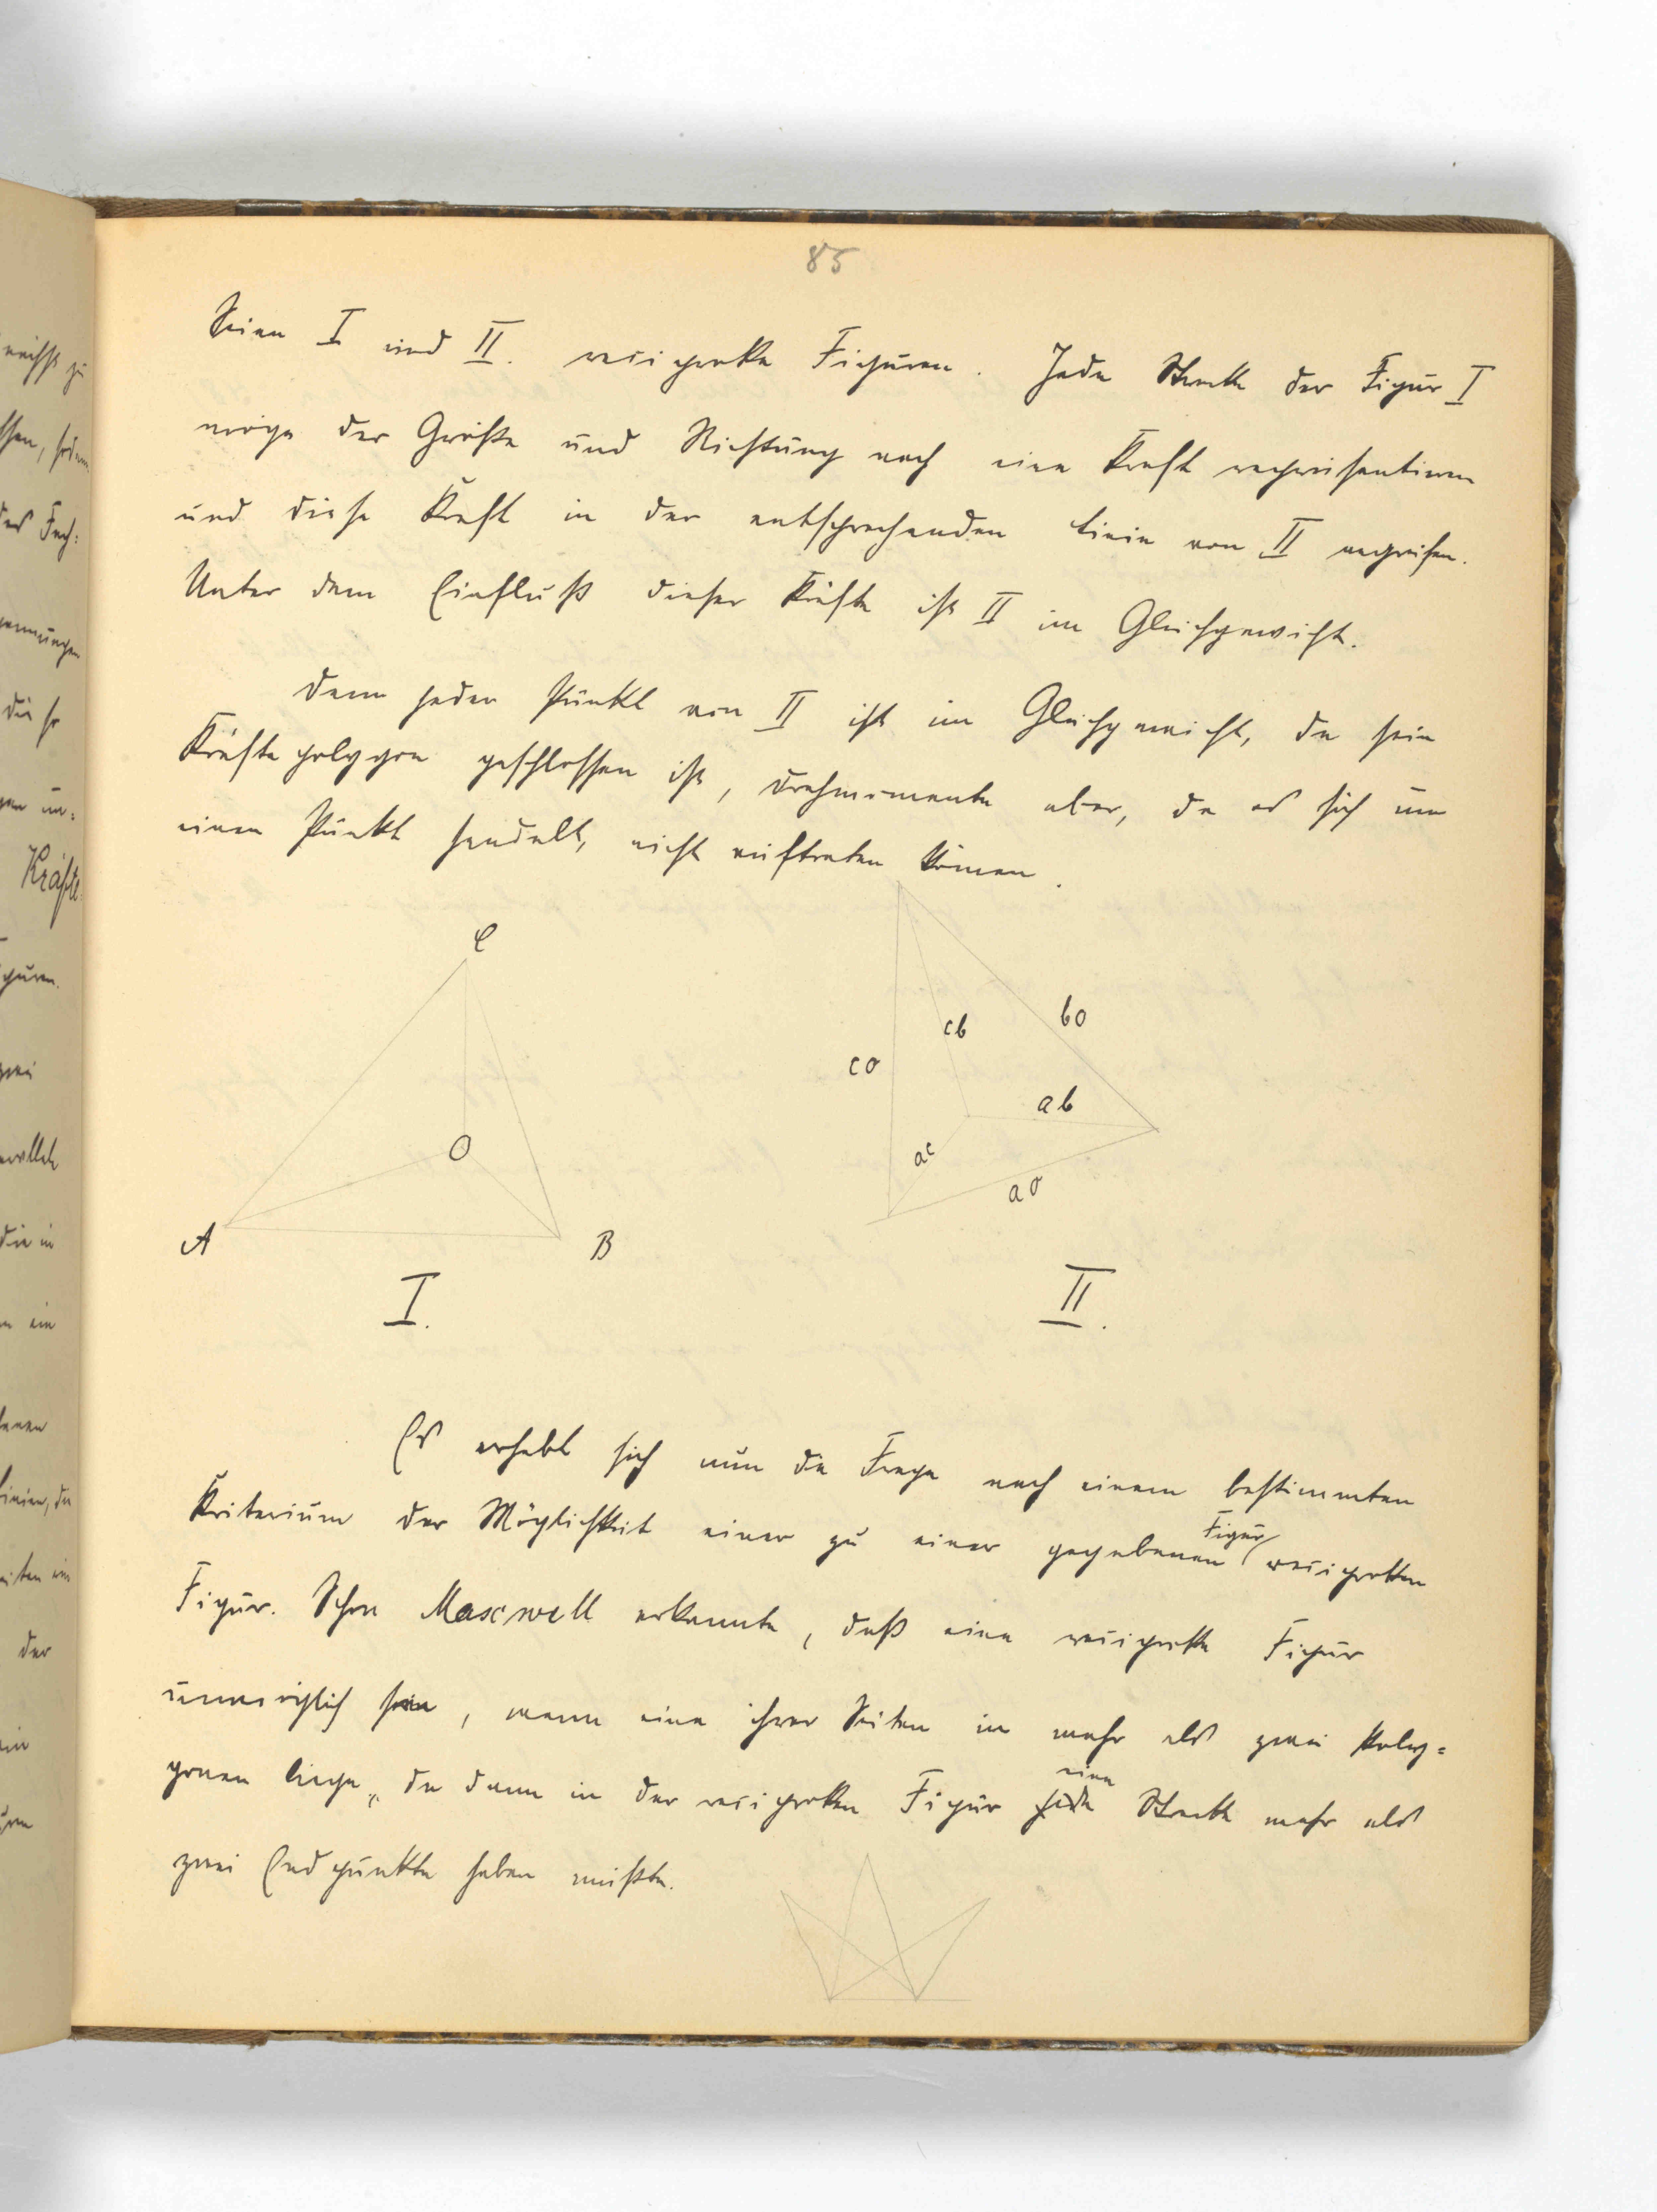 85
Seien I und II. reciproke Figuren. Jede Strecke der Figur I
möge der Größe und Richtung nach eine Kraft repräsentieren
und diese Kraft in der entsprechenden Linie von II angreifen.
Unter dem Einfluß dieser Kräfte ist II im Gleichgewicht.
Denn jeder Punkt von II ist im Gleichgewicht, da sein
Kräftepolygon geschlossen ist, Drehmomente aber, da es sich um
einen Punkt handelt, nicht auftreten können.
C
O
A
B
I.
bo
cb
co
ab
ac
ao
II.
Es erhebt sich nun die Frage nach einem bestimmten
Kriterium der Möglichkeit einer zu einer gegebenen Figur reciproken
Figur. Schon Maxwell erkannte, daß eine reciproke Figur
unmöglich sei, wenn eine ihrer Seiten in mehr als zwei Poly=
gonen liege, da dann in der reciproken Figur eine Strecke mehr als
zwei Endpunkte haben müßte.
Kräfte